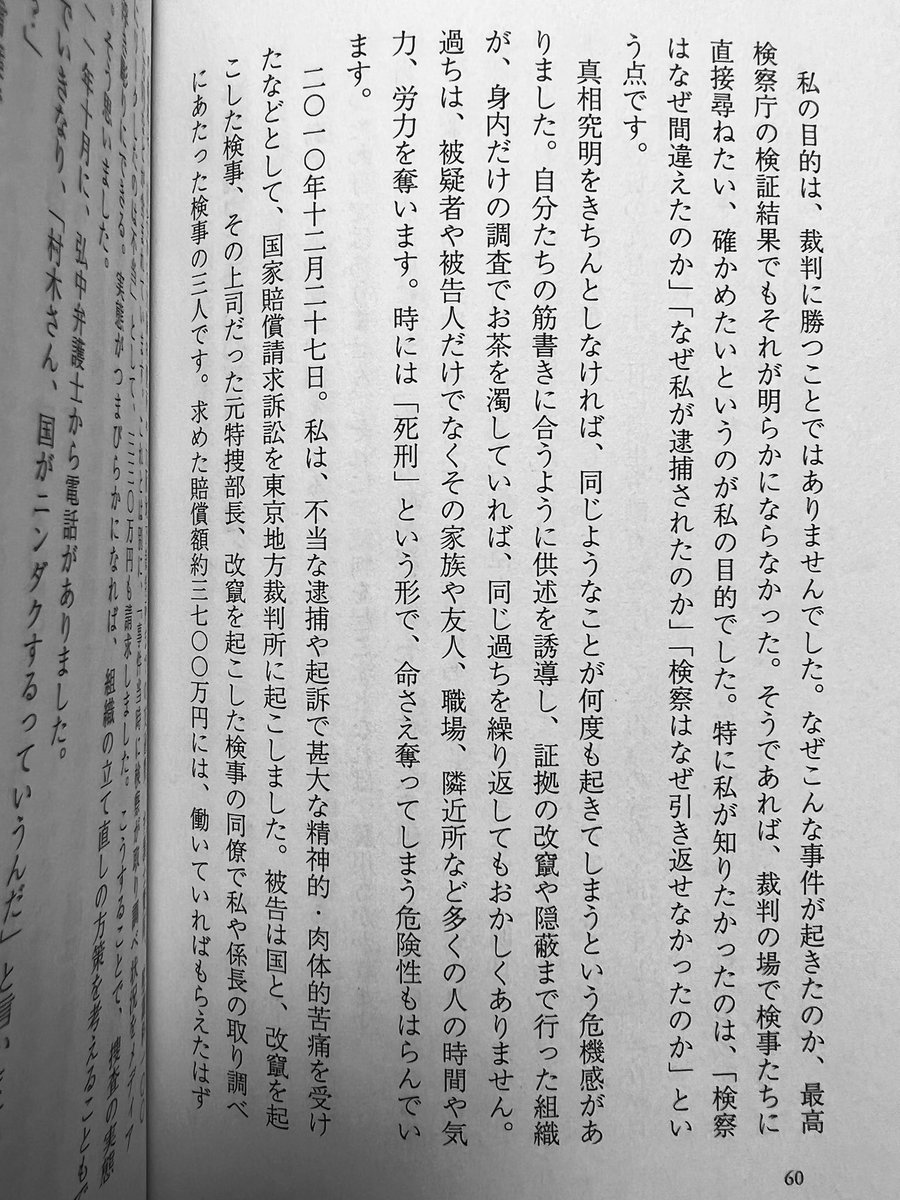 私の目的は、裁判に勝つことではありませんでした。なぜこんな事件が起きたのか、最高
検察庁の検証結果でもそれが明らかにならなかった。そうであれば、裁判の場で検事たちに
直接尋ねたい、確かめたいというのが私の目的でした。特に私が知りたかったのは、「検察
はなぜ間違えたのか」「なぜ私が逮捕されたのか」「検察はなぜ引き返せなかったのか」とい
う点です。
真相究明をきちんとしなければ、同じようなことが何度も起きてしまうという危機感があ
りました。自分たちの筋書きに合うように供述を誘導し、証拠の改竄や隠蔽まで行った組織
が、身内だけの調査でお茶を濁していれば、同じ過ちを繰り返してもおかしくありません。
過ちは、被疑者や被告人だけでなくその家族や友人、職場、隣近所など多くの人の時間や気
力、労力を奪います。時には「死刑」という形で、命さえ奪ってしまう危険性もはらんでい
ます。
二〇一〇年十二月二十七日。私は、不当な逮捕や起訴で甚大な精神的・肉体的苦痛を受け
たなどとして、国家賠償請求訴訟を東京地方裁判所に起こしました。被告は国と、改竄を起
こした検事、その上司だった元特捜部長、改竄を起こした検事の同僚で私や係長の取り調べ
にあたった検事の三人です。求めた賠償額約三七〇〇万円には、働いていればもらえたはず
60
として、三三〇万円も請求しました。こうすることで、捜査の実態
できる。実態がつまびらかになれば、組織の立て直しの方策を考えることもで
そう思いました。
年十月に、弘中弁護士から電話がありました。
でいきなり、「村木さん、国がニンダクするっていうんだ」と言い